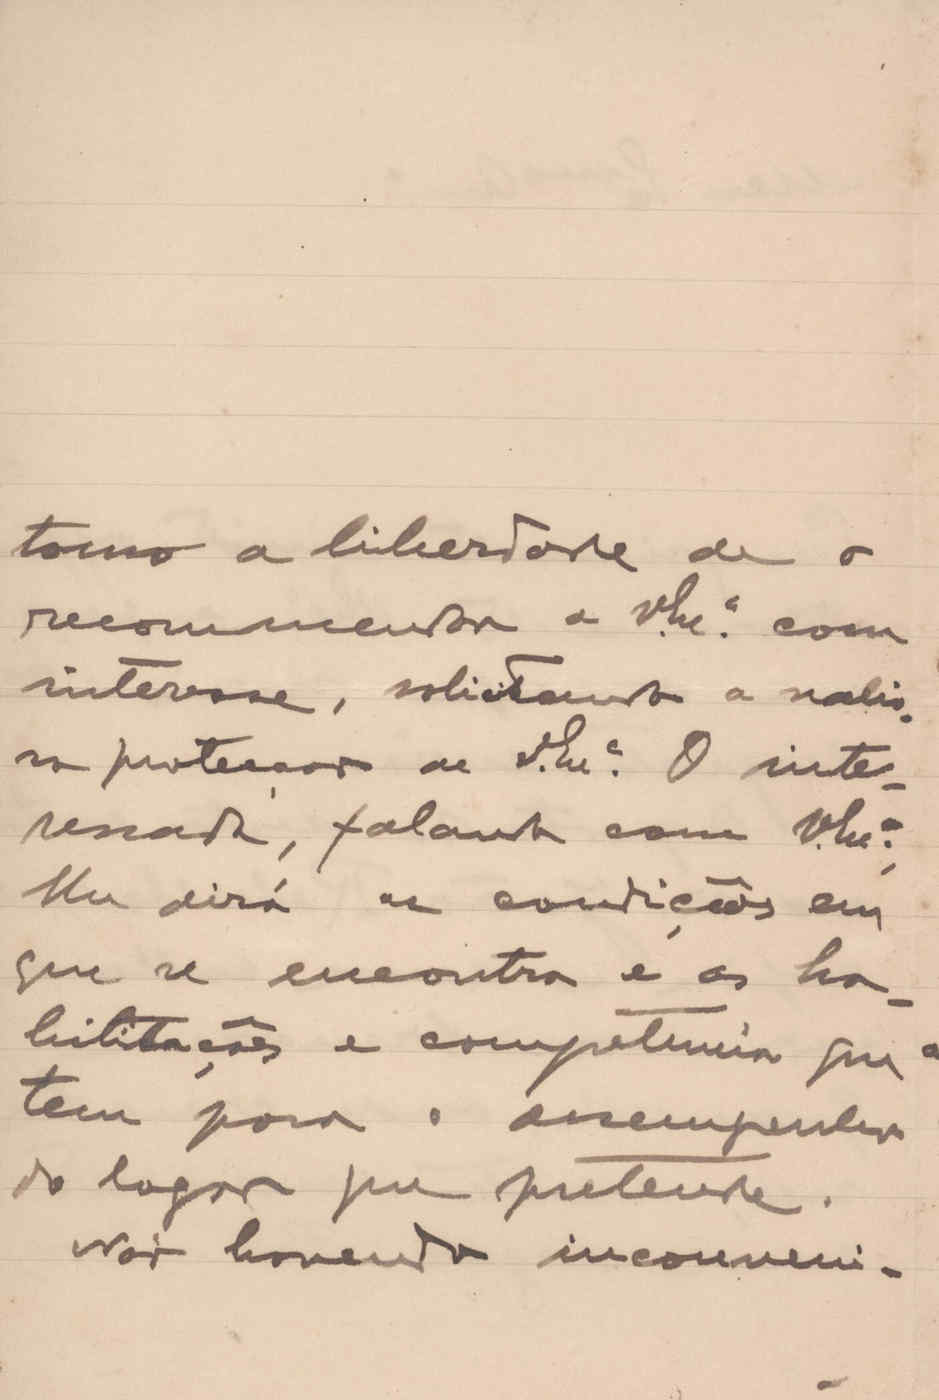 tomo a liberdade de o
recommendar a V. Ex.ª com
interesse, solicitando a valio-
sa protecção de V. Ex.ª. O inte-
ressado, falando com V. Ex.ª,
lhe dirá as condições em
que se encontra e as ha-
bilitações e competencia que
tem para o desempenho
do logar que pretende.
Não havendo inconveni-